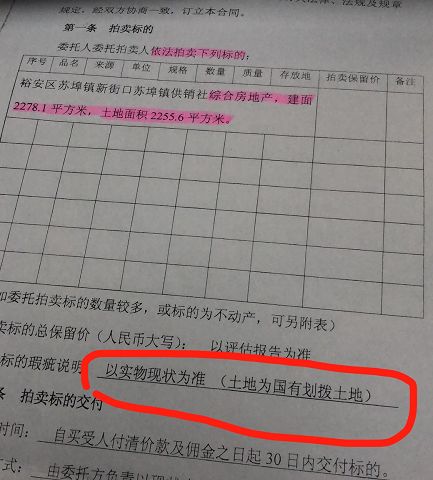 规定，经双方协商一致，订立本合同。
第一条 拍卖标的
委托人委托拍卖人依法拍卖下列标的：
序号 品名 来源 单位 规格 数量 质量 存放地 拍卖保留价 备注
裕安区苏埠镇新街口苏埠镇供销社综合房地产，建面
2278.1 平方米，土地面积 2255.6 平方米。
如委托拍卖标的数量较多，或标的为不动产，可另附表）
卖标的总保留价（人民币大写）： 以评估报告为准
标的瑕疵说明 以实物现状为准 （土地为国有划拨土地）
条 拍卖标的交付
时间： 自买受人付清价款及佣金之日起 30 日内交付标的。
方式： 由委托方负责以现